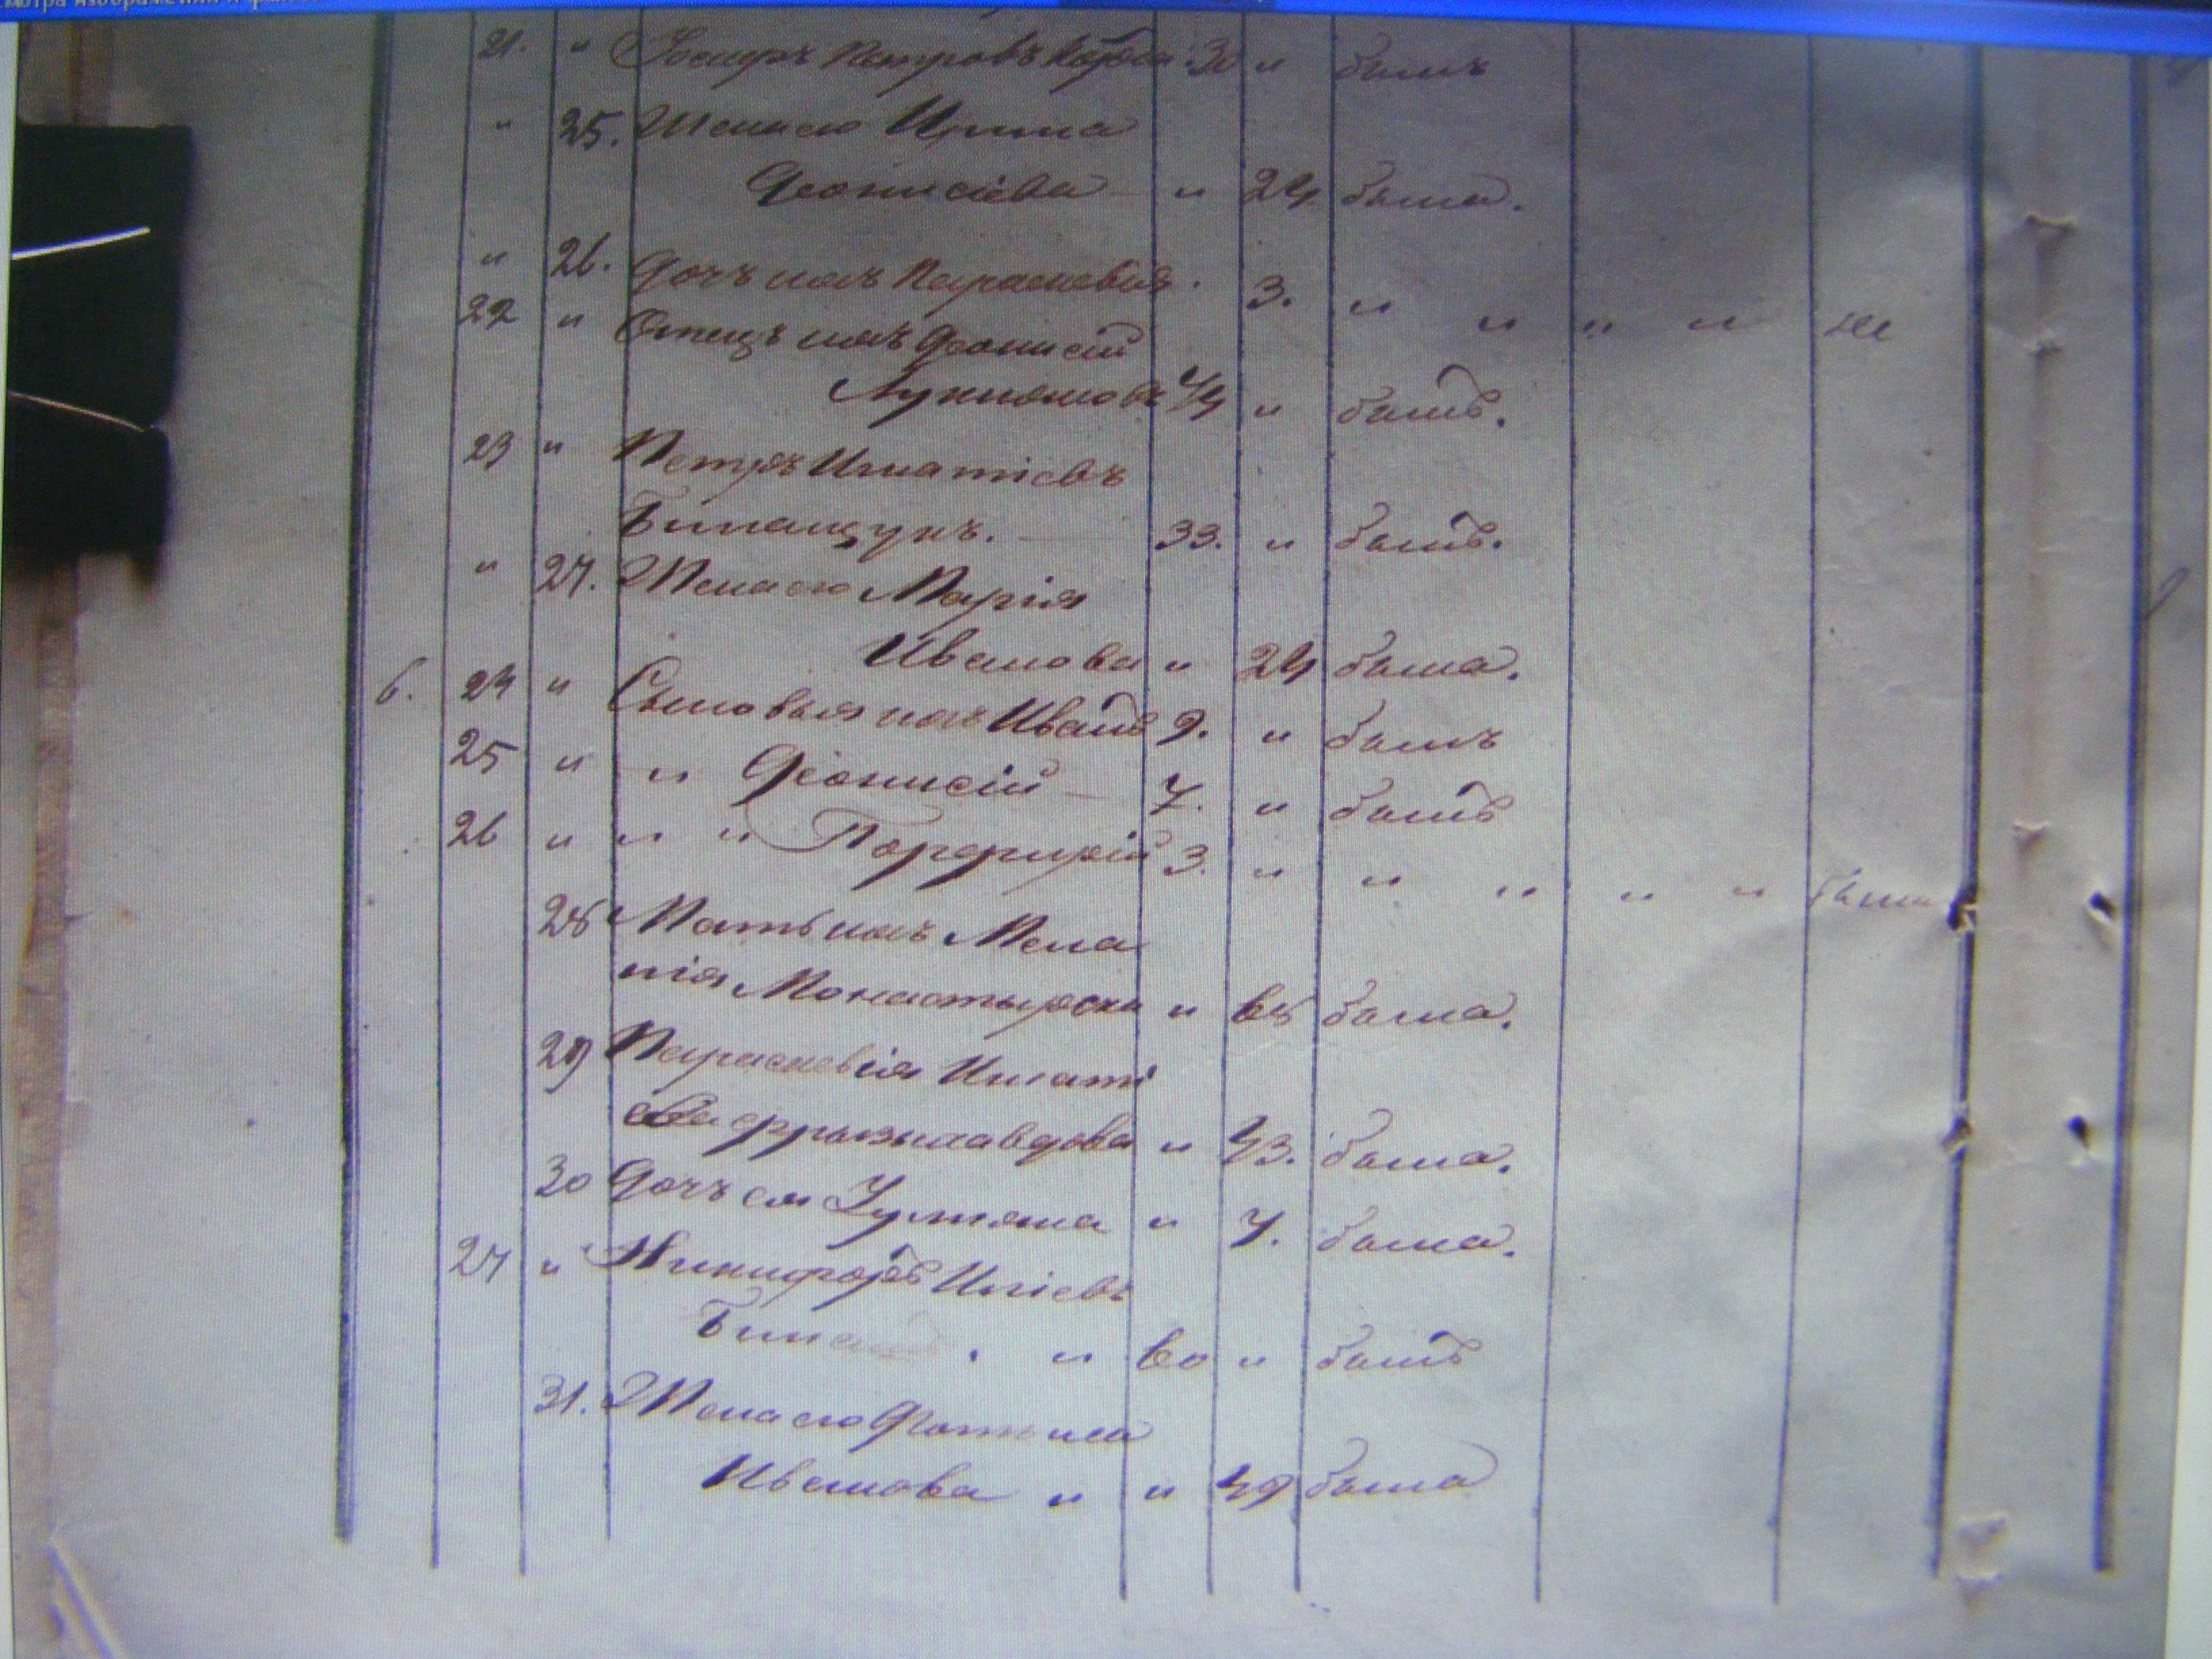 21. " Іосифъ Петровъ 30 " былъ
" 25. Жена его Ирина
Діонисіева " 24 была.
" 26. Дочь ихъ Параскевія. 3. " " " "
22 " Отецъ ихъ Діонисій
Лукияновъ " былъ.
23 " Петръ Игнатіевъ
33. " былъ.
" 27. Жена его Марія
Иванова " 24 была.
6. 24 " Сыновья ихъ Иванъ 9. " былъ
25 " " Діонисій 7. " былъ
26 " " " Порфирій 3. " " " " "
28 Мать ихъ Мела
нія Монастырска " была.
29 Параскевія Игнаті
ева вдова " 43. была.
30 Дочь ея Іуліяна " 7. была.
27 " Никифоръ Иліевъ
" 60 " былъ
31. Жена его
Иванова " " 49 была